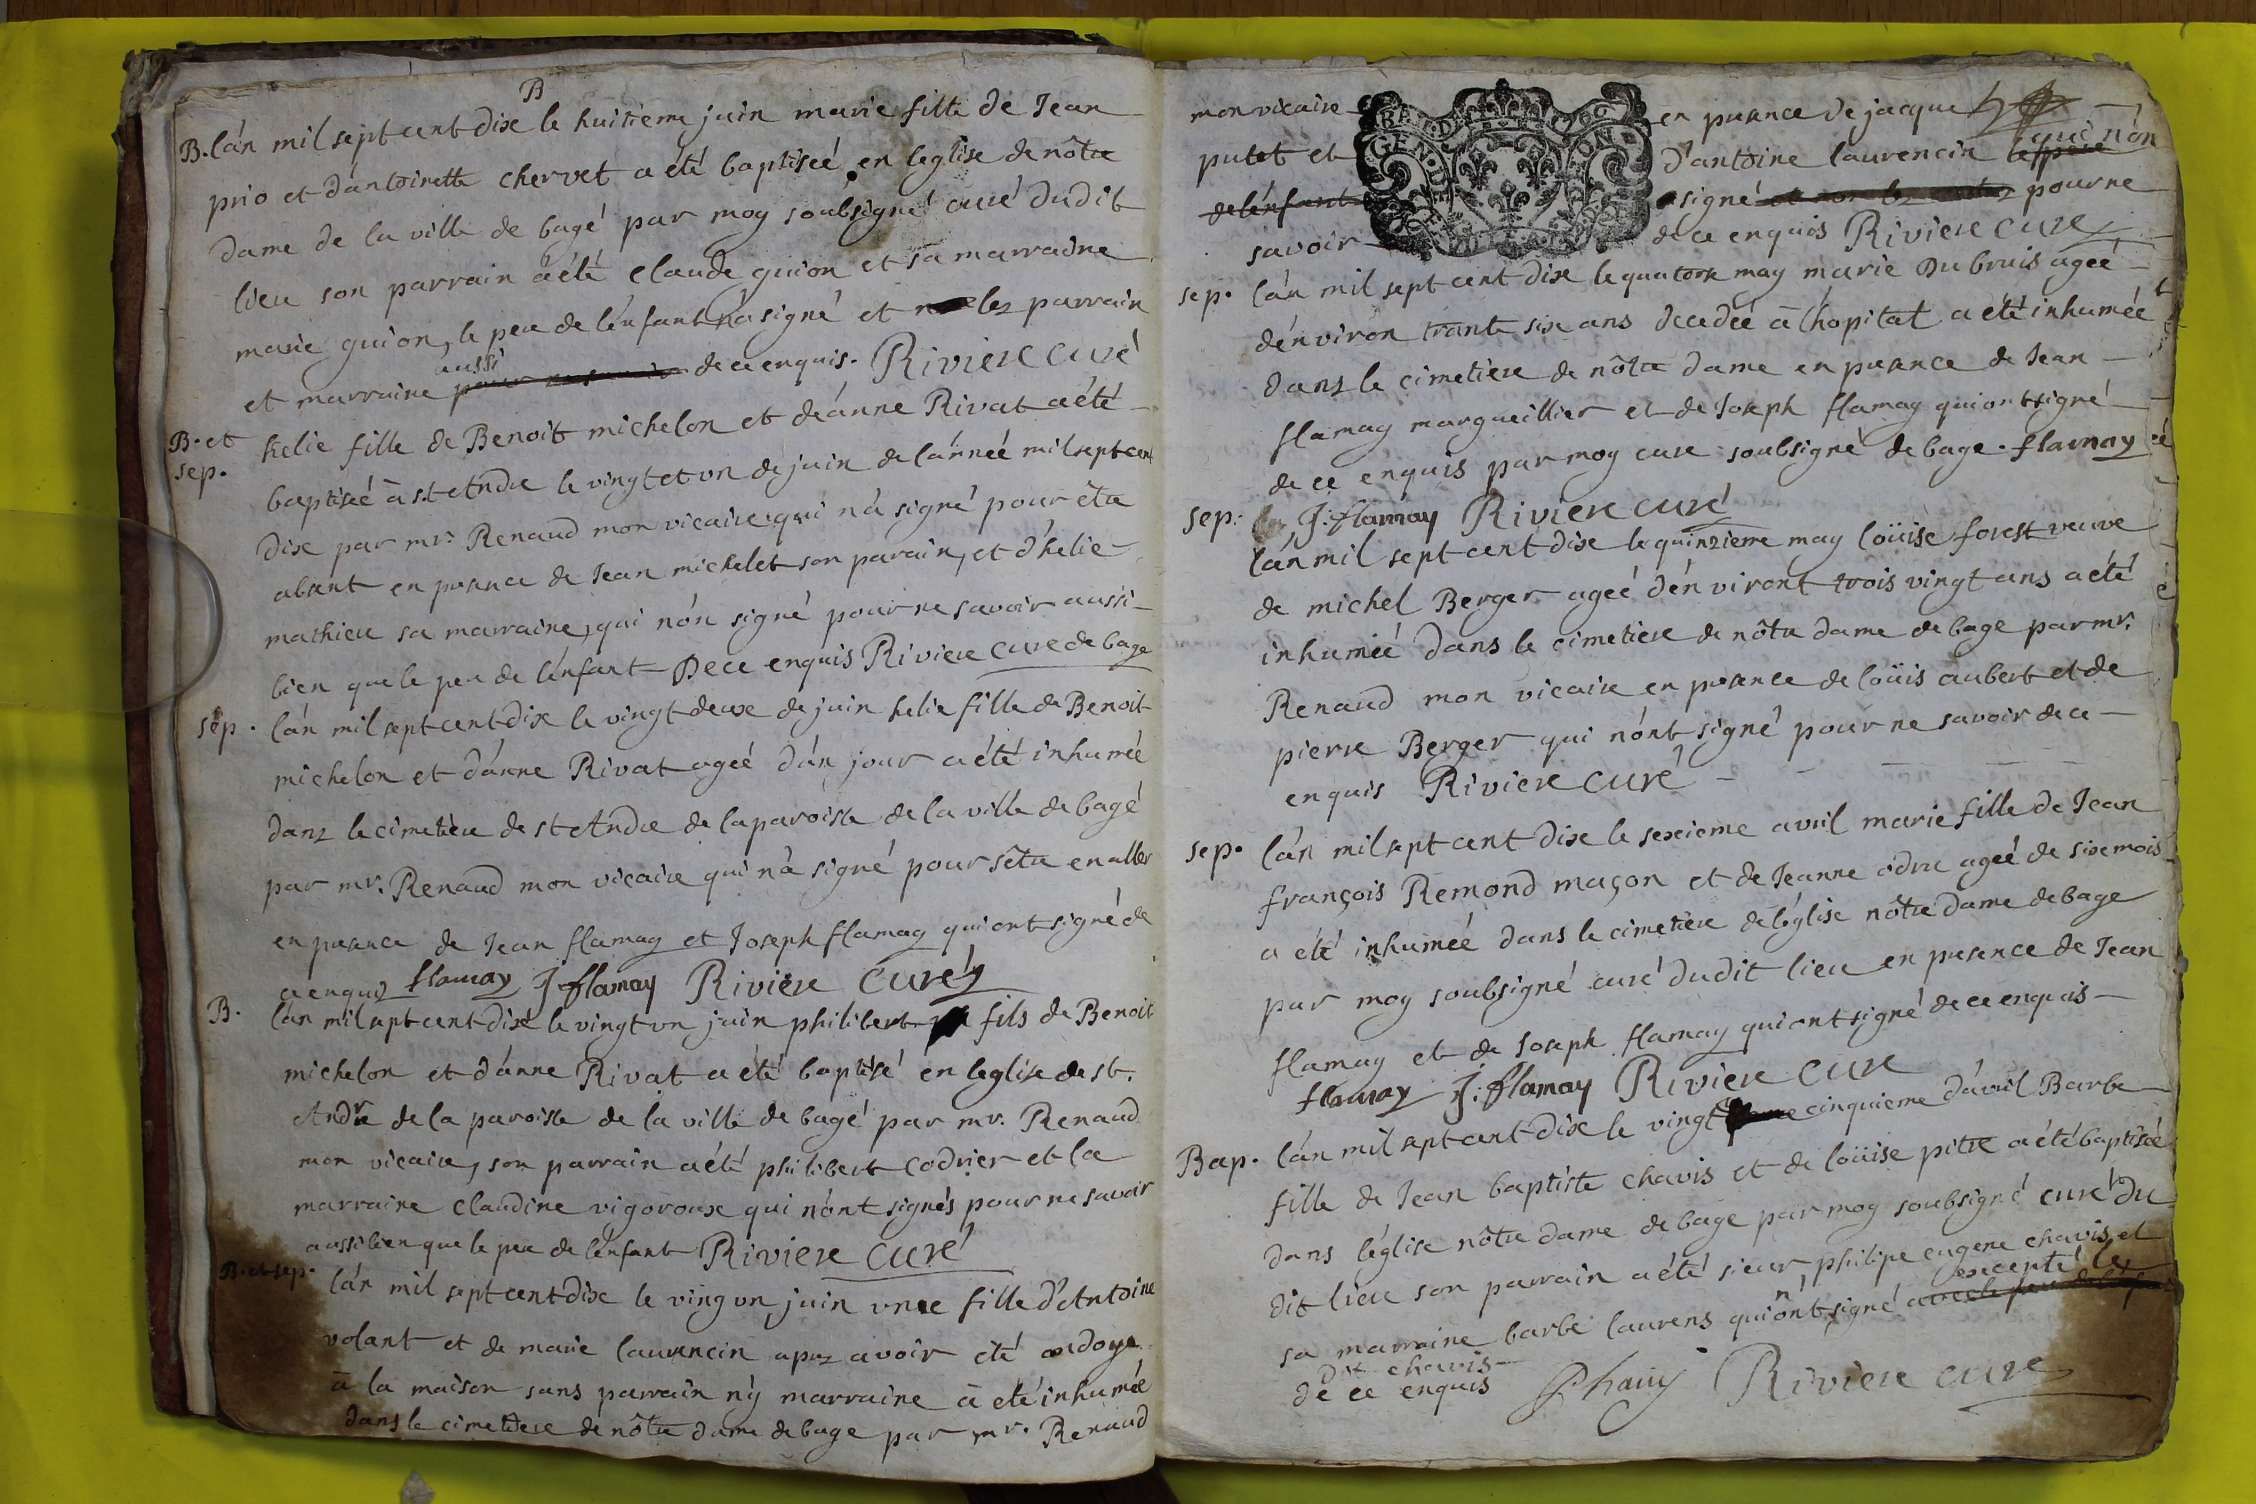 B
B. lán mil sept cent dix le huitieme juin marie fille de Jean
prio et dántoinette chervet a été baptiseé, en leglise de nôtre
dame de la ville de bagé par moy soubsigné curé dudit
lieu son parrain a été claude guion et sa marraine
marie guion, le pere de lénfant n'a signé et les parrain
et marraine aussi pour ne savoir de ce enquis. Riviere curé
B. et
sep.
helie fille de Benoit michelon et deánne Rivat a été
baptiseé à st Andre le vingt et vn de juin de lánneé mil sept cent
dix par mr. Renaud mon vicaire qui n'a signé pour être
absent en presence de Jean michelet son parain, et d'helie
mathieu sa marraine, qui nón signé pour ne savoir aussi
bien que le pere de lénfant De ce enquis Riviere cure de bage
sep. lán mil sept cent dix le vingt deux de juin helie fille de Benoit
michelon et dánne Rivat ageé dún jour a été inhumeé
dans le cimetiere de st Andre de la paroisse de la ville de bagé
par mr. Renaud mon vicaire qui n'a signé pour s'être en aller
en presence de Jean flamay et Joseph flamay qui ont signé de
ce enquis flamay J. flamay Riviere curé
B. lán mil sept cent dix le vingt vn juin philibert fils de Benoit
michelon et dánne Rivat a été baptisé en leglise de st.
Andre de la paroisse de la ville de bagé par mr. Renaud
mon vicaire, son parrain a été philibert Codrier et la
marraine claudine vigoroux qui nónt signés pour ne savoir
aussi bien que le pere de lénfant Riviere Curé
B. et sep. lán mil sept cent dix le ving vn juin vne fille d'Antoine
volant et de marie laurencin apres avoir été ondoye
à la maison sans parrain n'y marraine à eté inhumeé
dans le cimetiere de nôtre dame de bage par mr. Renaud
mon vicaire en presence de jacque
putet et d'antoine laurencin le pere qui nón
de lénfant signé pour ne
savoir de ce enquis Riviere cure
GEN. DE
sep. lán mil sept cent dix le quatorze may marie Dubruis ageé
dénviron trante six ans decedeé à lhopital a été inhumée
dans le cimetiere de nôtre dame en presence de Jean
flamay margueillier et de Joseph flamay qui ont signé
de ce enquis par moy cure soubsigné de bage. flamay
J. flamay Riviere curé
sep. lán mil sept cent dix le quinzieme may loüise forest veuve
de michel Berger ageé dénviront trois vingt ans a été
inhumeé dans le cimetiere de nôtre dame de bage par mr.
Renaud mon vicaire en presence de loüis aubert et de
pierre Berger qui nónt signé pour ne savoir de ce
enquis Riviere Curé
sep. lán mil sept cent dix le sexieme avril marie fille de Jean
françois Remond maçon et de Jeanne odru ageé de six mois
a été inhumeé dans le cimetiere de léglise nôtre dame de bage
par moy soubsigné curé dudit lieu en presence de Jean
flamay et de Joseph flamay qui ont signé de ce enquis
flamay J. flamay Riviere cure
Bap. lán mil sept cent dix le vingt cinquieme dávril Barbe
fille de Jean baptiste chavis et de loüise pitre a été baptiseé
dans léglise nôtre dame de bage par moy soubsigné curé du
dit lieu son parrain a été sieur philipe eugene chavis et
sa marraine barbe laurens qui nónt signé excepté le
dit chavis
de ce enquis Riviere cure